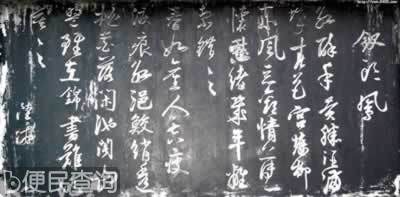 钗头凤
红酥手黄縢酒满
城春色宫墙柳
东风恶欢情薄一
怀愁绪几年离
索错々々
春如旧人空瘦
泪痕红浥鲛绡透
桃花落闲池阁山
盟虽在锦书难
陆游
便民查询